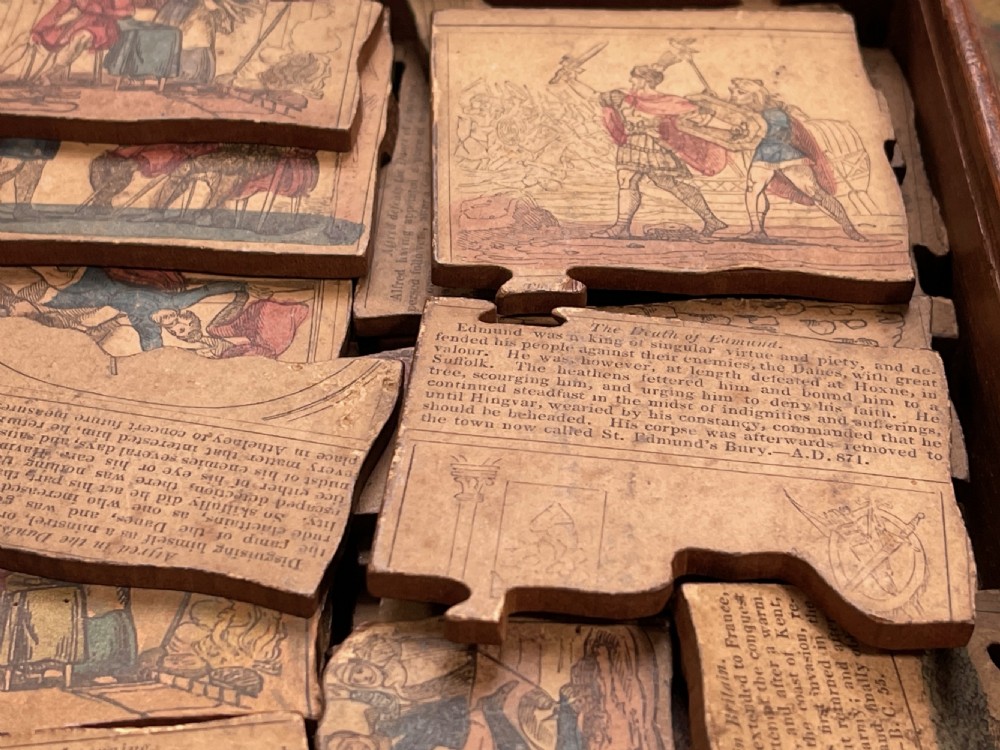 The Death of Edmund.
Edmund was a king of singular virtue and piety, and de-
fended his people against their enemies, the Danes, with great
valour. He was, however, at length defeated at Hoxne, in
Suffolk. The heathens fettered him and bound him to a
tree, scourging him, and urging him to deny his faith. He
continued steadfast in the midst of indignities and sufferings,
until Hingvar, wearied by his constancy, commanded that he
should be beheaded. His corpse was afterwards removed to
the town now called St. Edmund's Bury.—A.D. 871.
Alfred in the Danish
Disguising himself as a minstrel, or
the camp of the Danes, and was
rude Sometimes, as one who
lity. So skilfully did he act his part
tice either of his eye or ear. Having
escaped detection, there was nothing
midst of his enemies several days, and
every matter that interested him, he re
since in Athelney to concert future measures
Alfred having
Britain.
ceeded to France,
exter the conquest
tempt, after a warm
and coast of Kent,
the invasion, re-
ing learned in the
it returned and
army; and
und finally
B. C. 55.